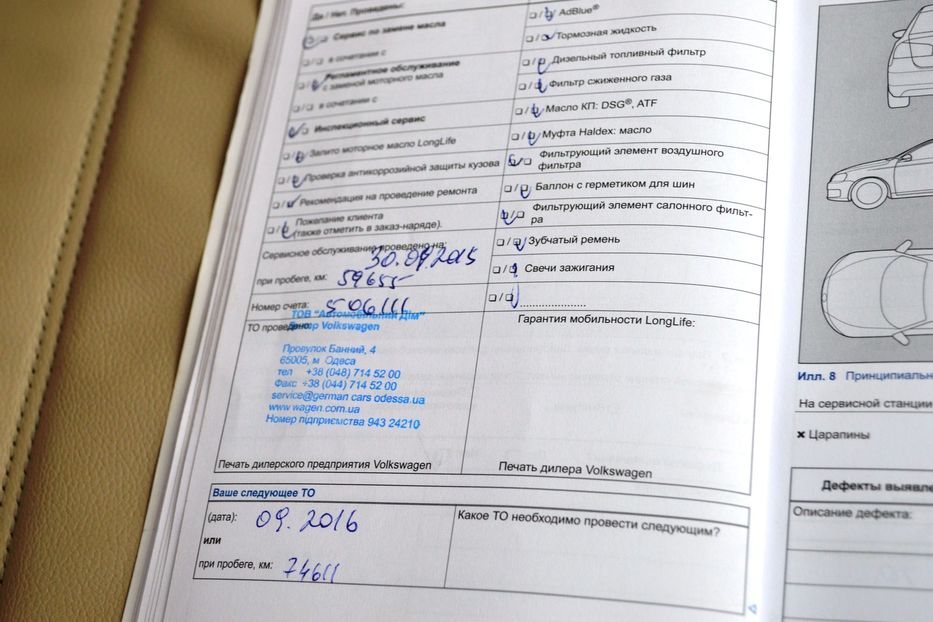 Да / Нет. Проведены:
Сервис по замене масла
в сочетании с
Регламентное обслуживание
с заменой моторного масла
в сочетании с
Инспекционный сервис
Залито моторное масло LongLife
Проверка антикоррозийной защиты кузова
Рекомендация на проведение ремонта
Пожелание клиента
(также отметить в заказ-наряде).
Сервисное обслуживание проведено на:
30.09.2015
при пробеге, км: 59655
Номер счета: 506111
ТО проведено
ТОВ "Автомобільний Дім"
Volkswagen
Провулок Банний, 4
65005, м Одеса
тел +38 (048) 714 52 00
Факс +38 (044) 714 52 00
service@german cars odessa.ua
www.wagen.com.ua
Номер підприємства 943 24210
Печать дилерского предприятия Volkswagen
AdBlue®
Тормозная жидкость
Дизельный топливный фильтр
Фильтр сжиженного газа
Масло КП: DSG®, ATF
Муфта Haldex: масло
Фильтрующий элемент воздушного
фильтра
Баллон с герметиком для шин
Фильтрующий элемент салонного фильт-
ра
Зубчатый ремень
Свечи зажигания
......................
Гарантия мобильности LongLife:
Печать дилера Volkswagen
Ваше следующее ТО
(дата): 09. 2016
или
при пробеге, км: 74611
Какое ТО необходимо провести следующим?
Илл. 8 Принципиальн
На сервисной станции
× Царапины
Дефекты выявле
Описание дефекта: